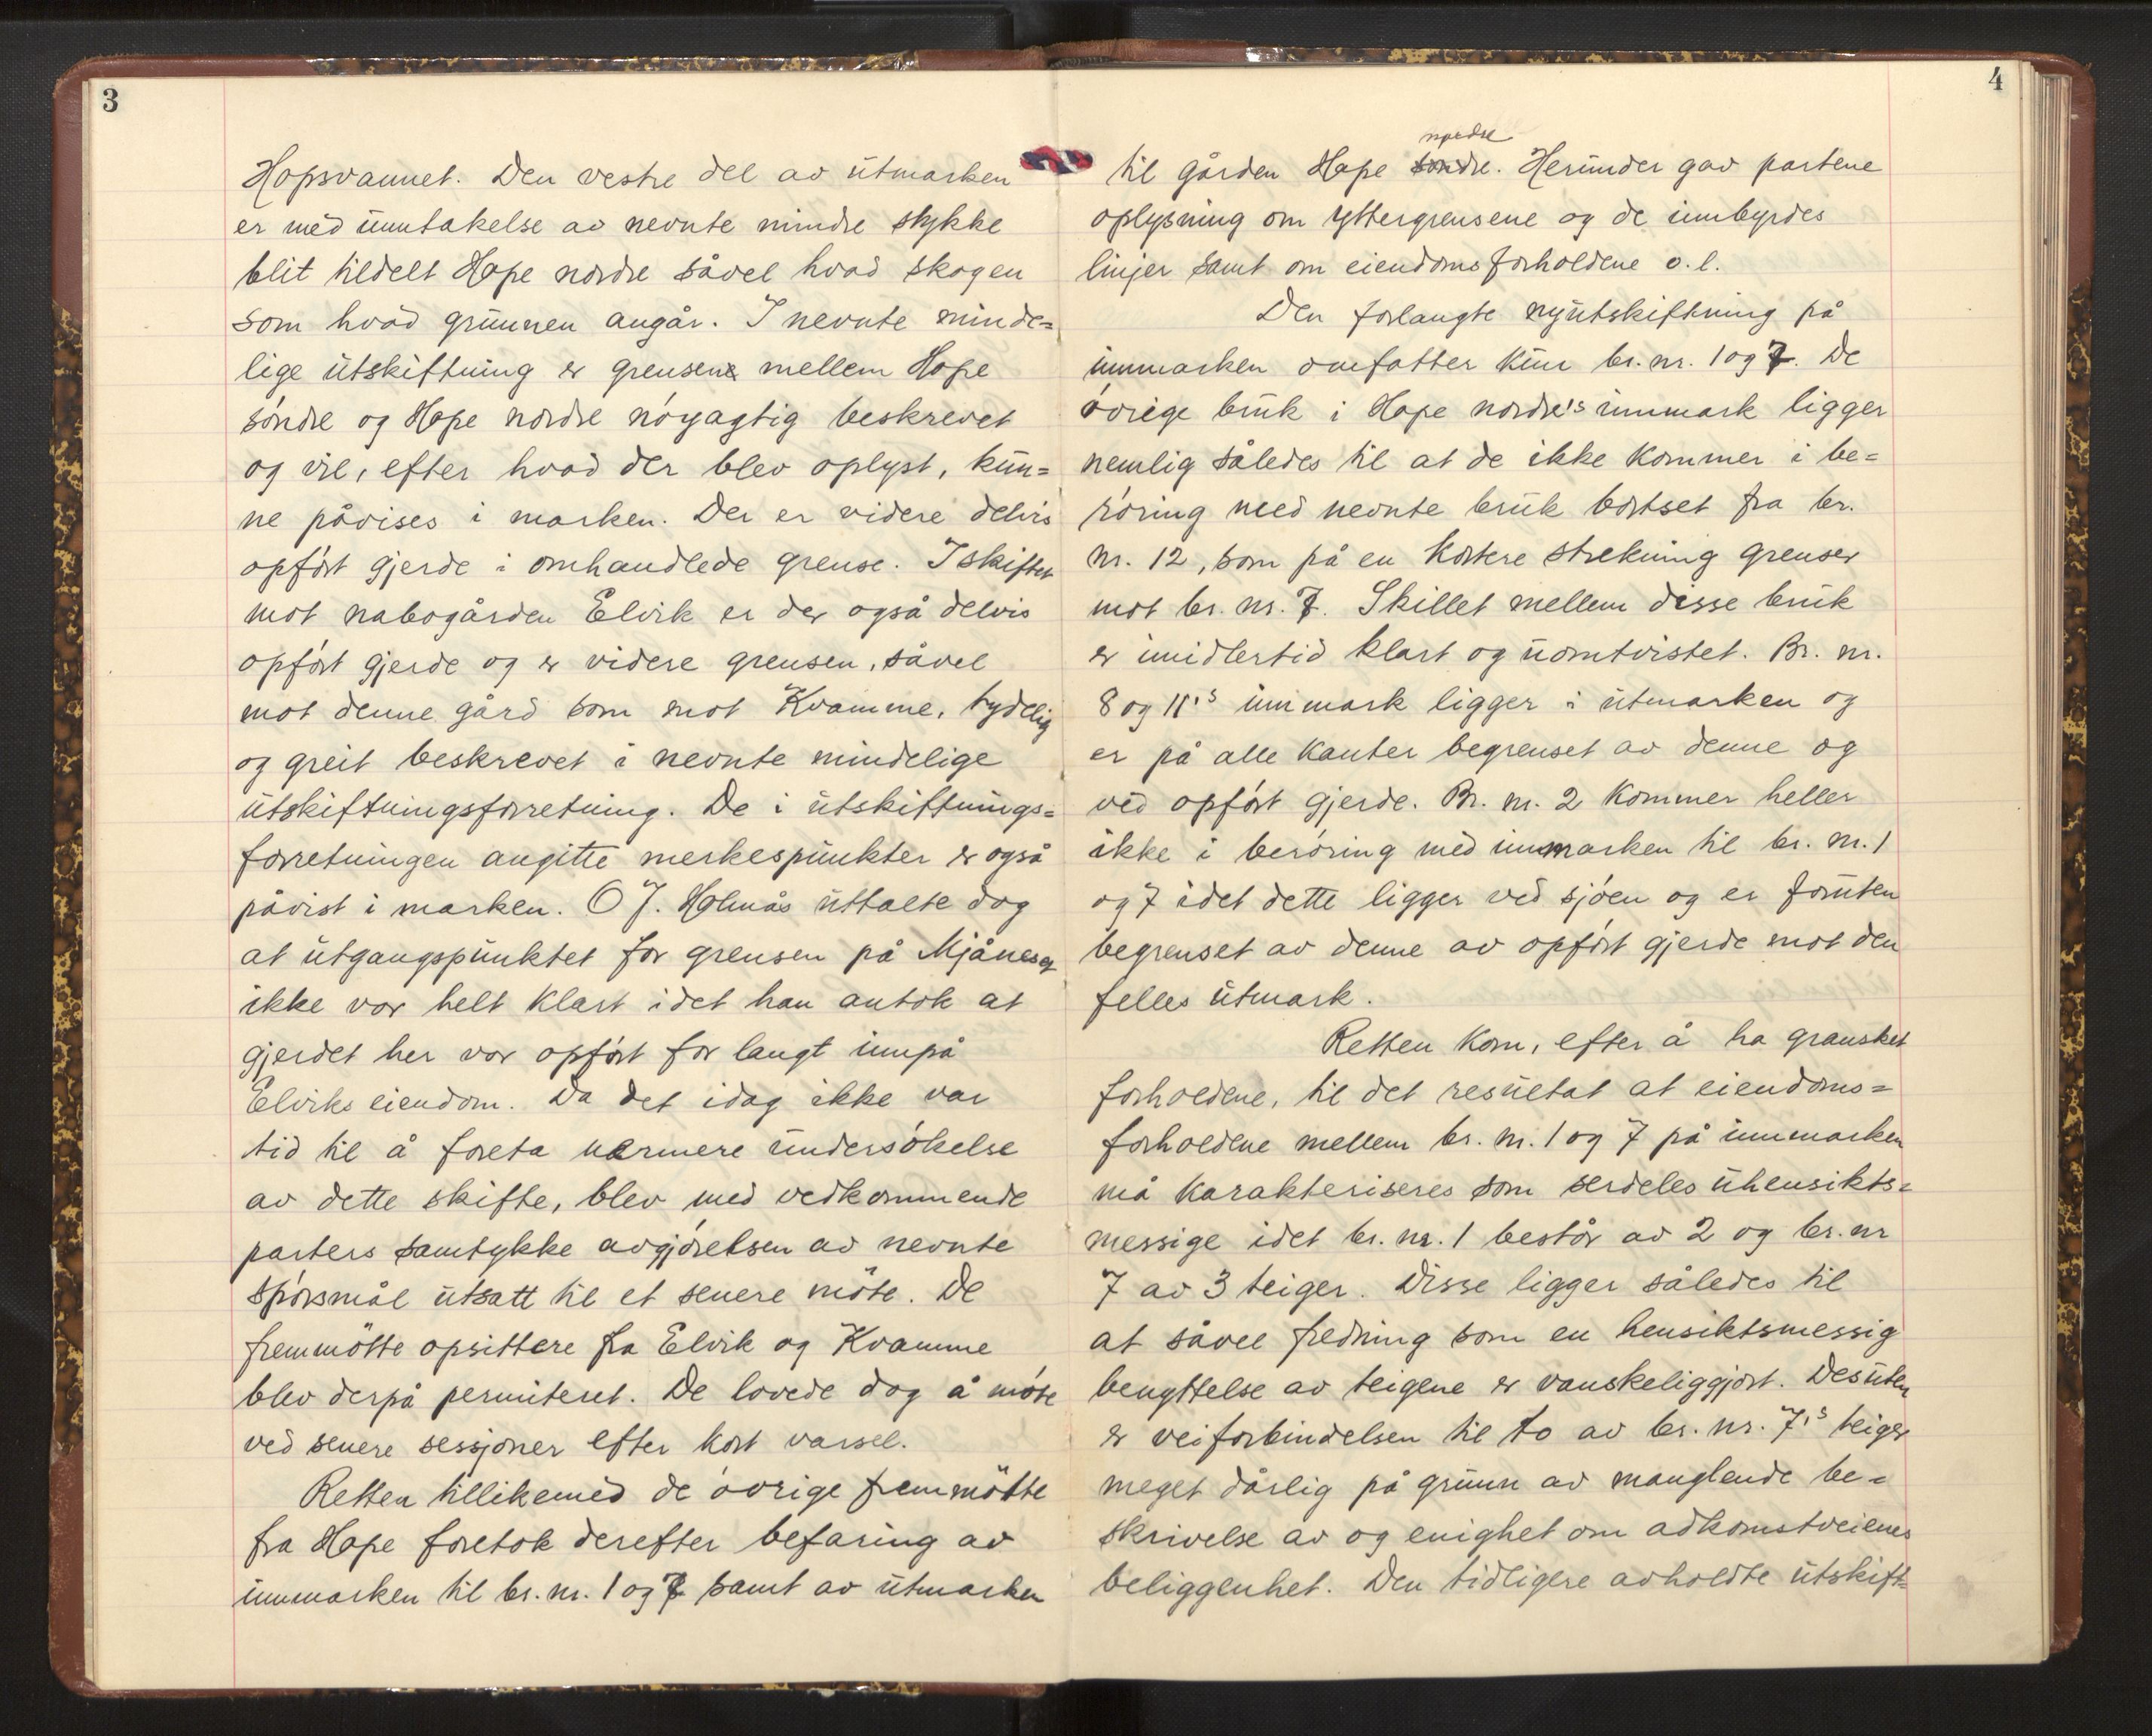 3
Hopsvannet. Den vestre del av utmarken
er med unntakelse av nevnte mindre stykke
blit tildelt Hope nordre såvel hvad skogen
som hvad grunnen angår. I nevnte minde=
lige utskiftning er grensene mellem Hope
söndre og Hope nordre nöyagtig beskrevet
og vil, efter hvad der blev oplyst, kun=
ne påvises i marken. Der er videre delvis
opfört gjerde i omhandlede grense. I skiftet
mot nabogården Elvik er der også delvis
opfört gjerde og er videre grensen, såvel
mot denne gård som mot Kvamme, tydelig
og greit beskrevet i nevnte mindelige
utskiftningsforretning. De i utskiftnings=
forretningen angitte merkespunkter er også
påvist i marken. O J. Holmås uttalte dog
at utgangspunktet for grensen på Mjånes
ikke var helt klart idet han antok at
gjerdet her var opfört for langt innpå
Elviks eiendom. Da det idag ikke var
tid til å foreta nærmere undersökelse
av dette skifte, blev med vedkommende
parters samtykke avgjörelsen av nevnte
spörsmål utsatt til et senere möte. De
fremmötte opsittere fra Elvik og Kvamme
blev derpå permiteret. De lovede dog å möte
ved senere sessjoner efter kort varsel.
Retten tillikemed de övrige fremmötte
fra Hope foretok derefter befaring av
innmarken til br. nr. 1 og 7 samt av utmarken
4
nordre
til gården Hope söndre. Herunder gav partene
oplysning om yttergrensene og de innbyrdes
linjer samt om eiendomsforholdene o. l.
Den forlangte nyutskiftning på
innmarken omfatter kun br. nr. 1 og 7. De
övrige bruk i Hope nordre's innmark ligger
nemlig således til at de ikke kommer i be=
röring med nevnte bruk bortset fra br.
nr. 12, som på en kortere strekning grenser
mot br. nr. 7. Skillet mellem disse bruk
er imidlertid klart og uomtvistet. Br. nr.
8 og 11's innmark ligger i utmarken og
er på alle kanter begrenset av denne og
ved opfört gjerde. Br. nr. 2 kommer heller
ikke i beröring med innmarken til br. nr. 1
og 7 idet dette ligger ved sjöen og er foruten
begrenset av denne av opfört gjerde mot den
felles utmark.
Retten kom, efter å ha gransket
forholdene, til det resultat at eiendoms=
forholdene mellem br. nr. 1 og 7 på innmarken
må karakteriseres som serdeles uhensikts=
messige idet br. nr. 1 består av 2 og br. nr
7 av 3 teiger. Disse ligger således til
at såvel fredning som en hensiktsmessig
benyttelse av teigene er vanskeliggjort. Desuten
er veiforbindelsen til to av br. nr. 7's teiger
meget dårlig på grunn av manglende be=
skrivelse av og enighet om adkomstveienes
beliggenhet. Den tidligere avholdte utskift=